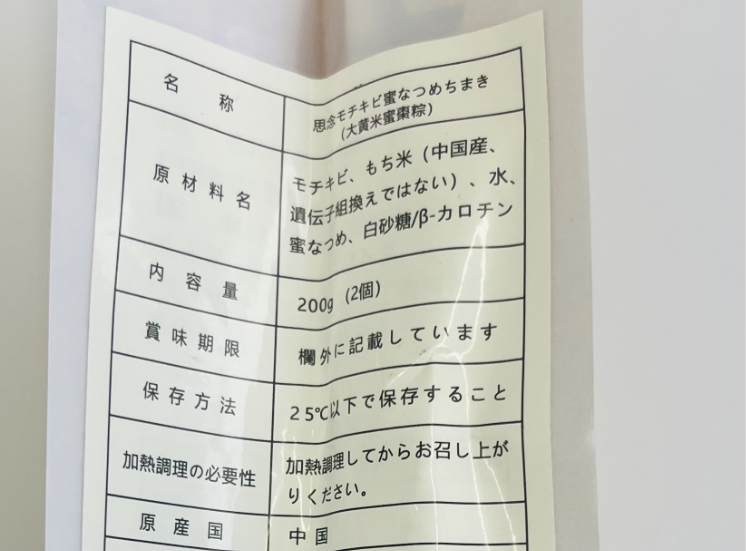 名称
思念モチキビ蜜なつめちまき
(大黄米蜜棗粽)
原材料名
モチキビ、もち米(中国産、
遺伝子組換えではない)、水、
蜜なつめ、白砂糖/β-カロチン
内容量
200g (2個)
賞味期限
欄外に記載しています
保存方法
25℃以下で保存すること
加熱調理の必要性
加熱調理してからお召し上が
りください。
原産国
中国